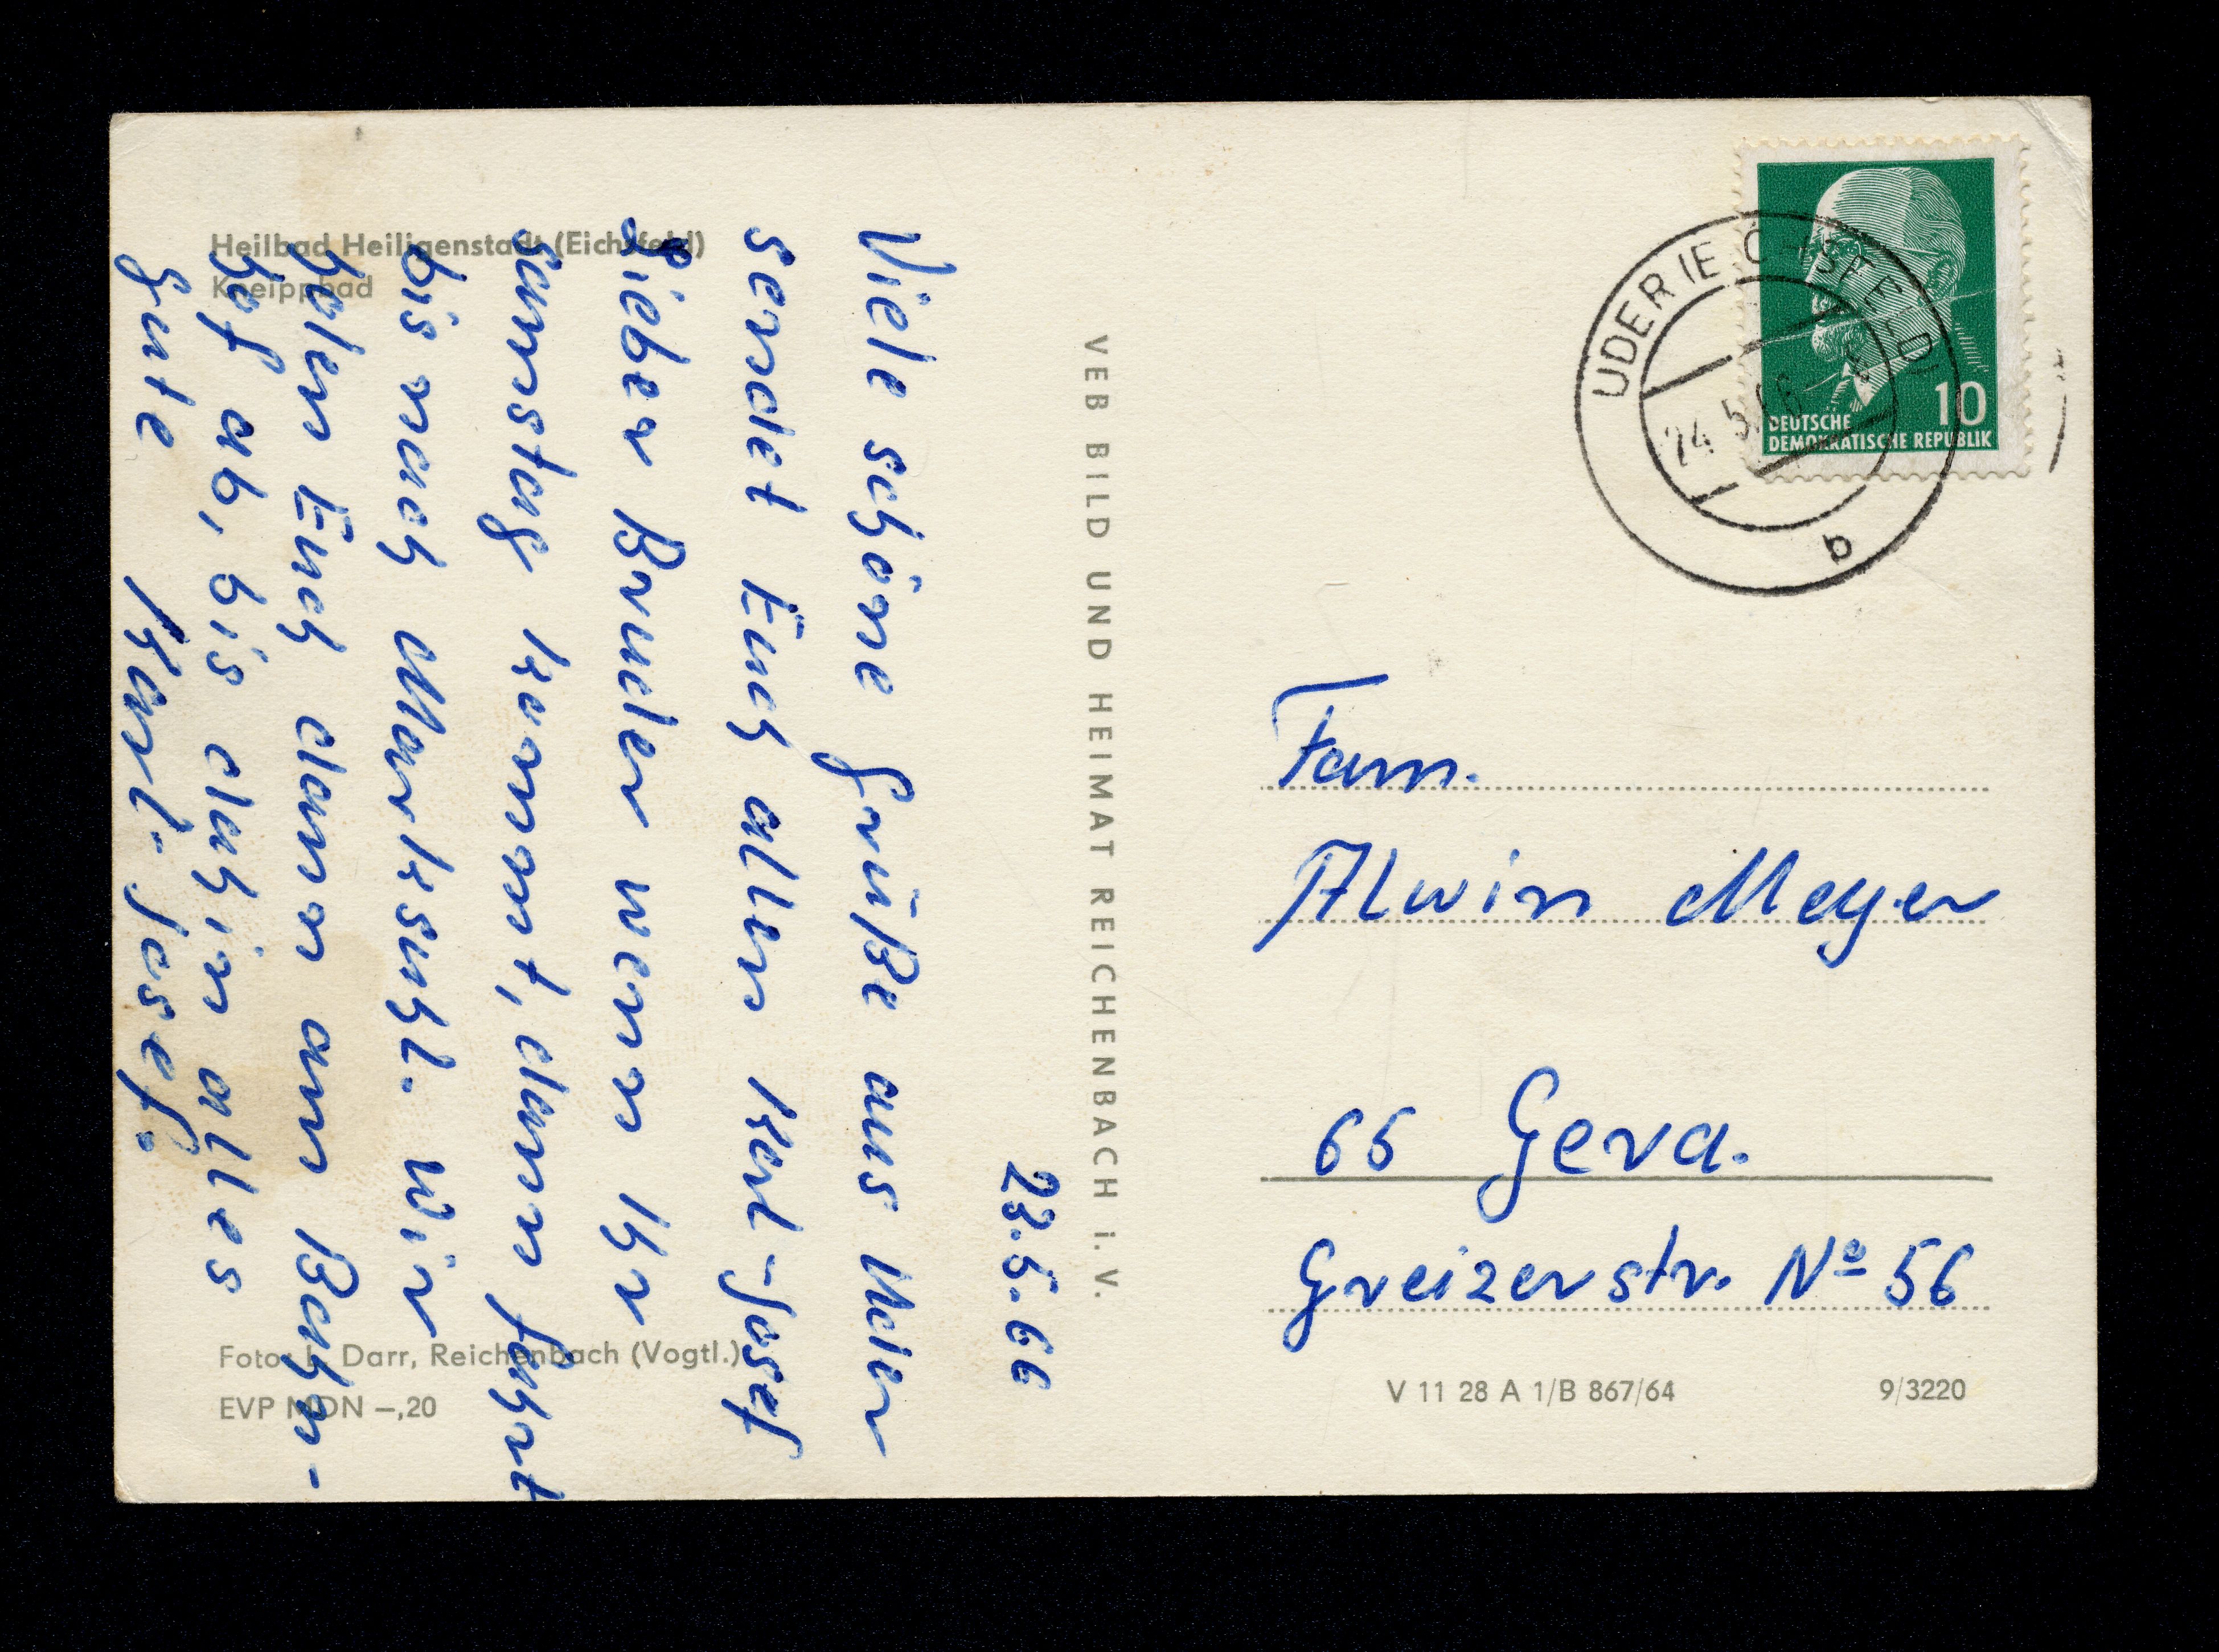 Heilbad Heiligenstadt (Eichsfeld)
Kneippbad
23.5.66
Viele schöne Grüße aus Uder
sendet Euch allen Karl-Josef
Lieber Bruder wenn Ihr
Samstag kommt, dann fahrt
bis nach Marksuhl. Wir
holen Euch dann am Bahn-
hof ab, bis dahin alles
Gute Karl-Josef.
Foto: Darr, Reichenbach (Vogtl.)
EVP MDN –,20
VEB BILD UND HEIMAT REICHENBACH I. V.
UDER (EICHSFELD)
24.5.66
a
10
DEUTSCHE
DEMOKRATISCHE REPUBLIK
Fam.
Alwin Meyer
65 Gera.
Greizerstr. Nº 56
V 11 28 A 1/B 867/64
9/3220